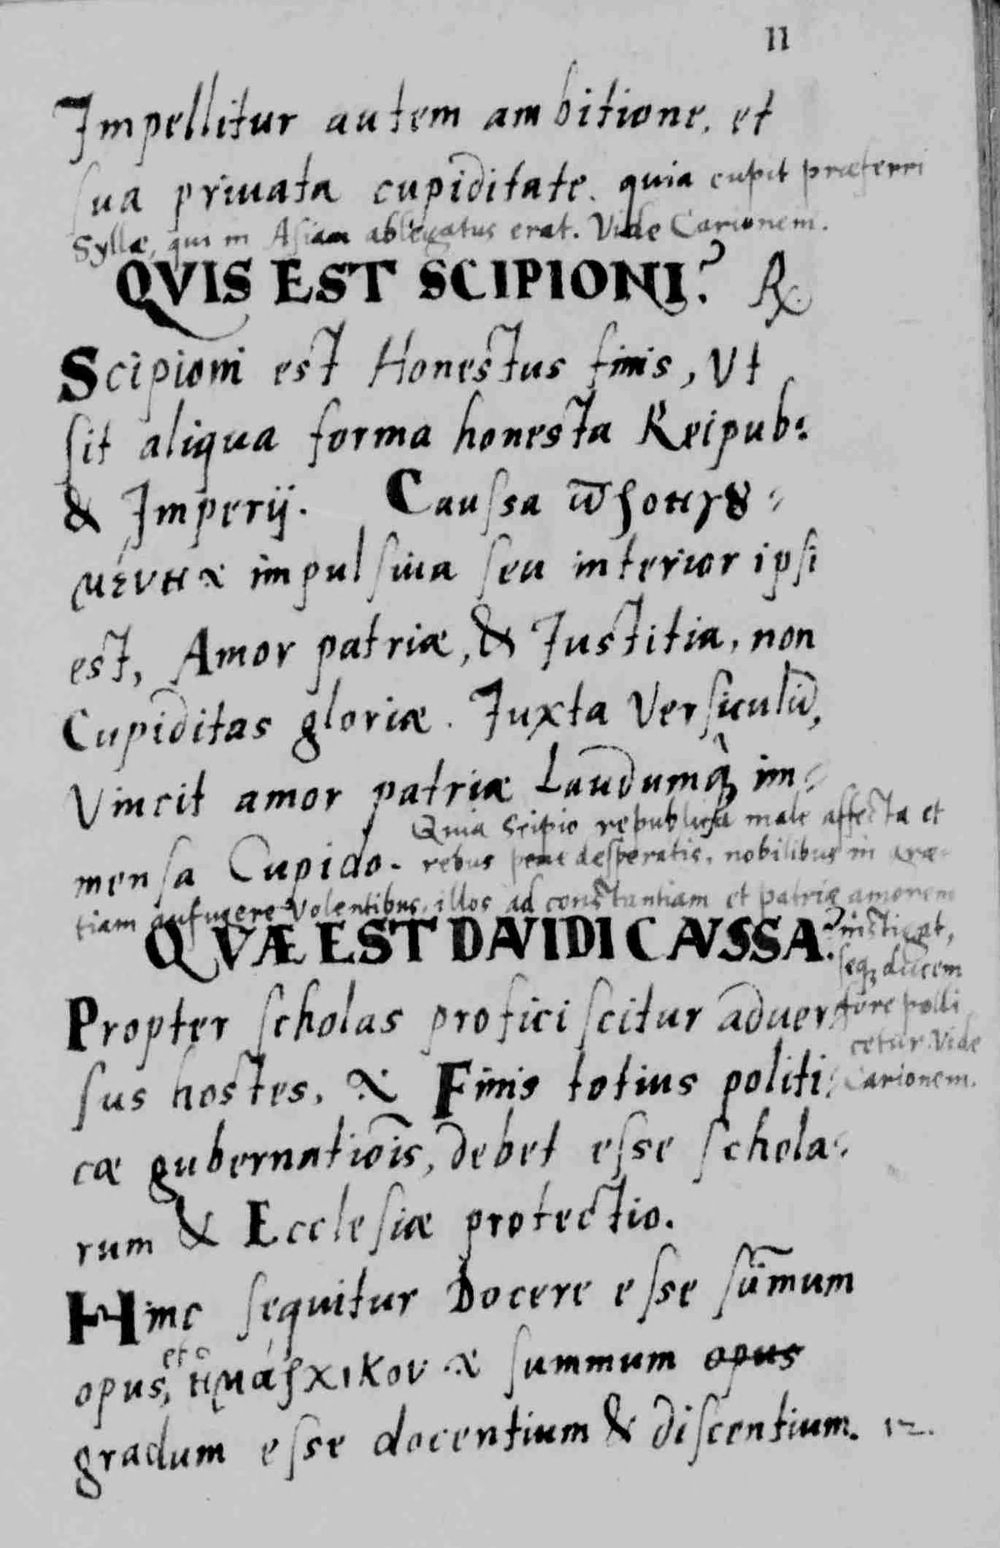 11
Impellitur autem ambitione, et
sua priuata cupiditate. quia cupit præferri
Syllæ, qui in Asiam ablegatus erat. Vide Carionem.
QVIS EST SCIPIONI? ℞
Scipioni est Honestus finis, Vt
sit aliqua forma honesta Reipub:
& Imperij. Caussa
impulsiua seu interior ipsi
est, Amor patriæ, & Iustitia, non
Cupiditas gloriæ. Iuxta Versiculū,
Vincit amor patriæ Laudumq́ im⸗
mensa Cupido. Quia Scipio republica male affecta et
rebus pene desperatis, nobilibus in Græ-
tiam aufugere Volentibus, illos ad constantiam et patriæ amorem
instigat,
seq ducem
fore polli
cetur. Vide
Carionem.
QVÆ EST DAVIDI CAVSSA?
Propter scholas proficiscitur aduer⸗
sus hostes, & Finis totius politi⸗
cæ gubernatiōis, debet esse schola⸗
rum & Ecclesiæ protectio.
Hinc sequitur Docere esse sūmum
opus, et & summum opus
gradum esse docentium & discentium. 12.